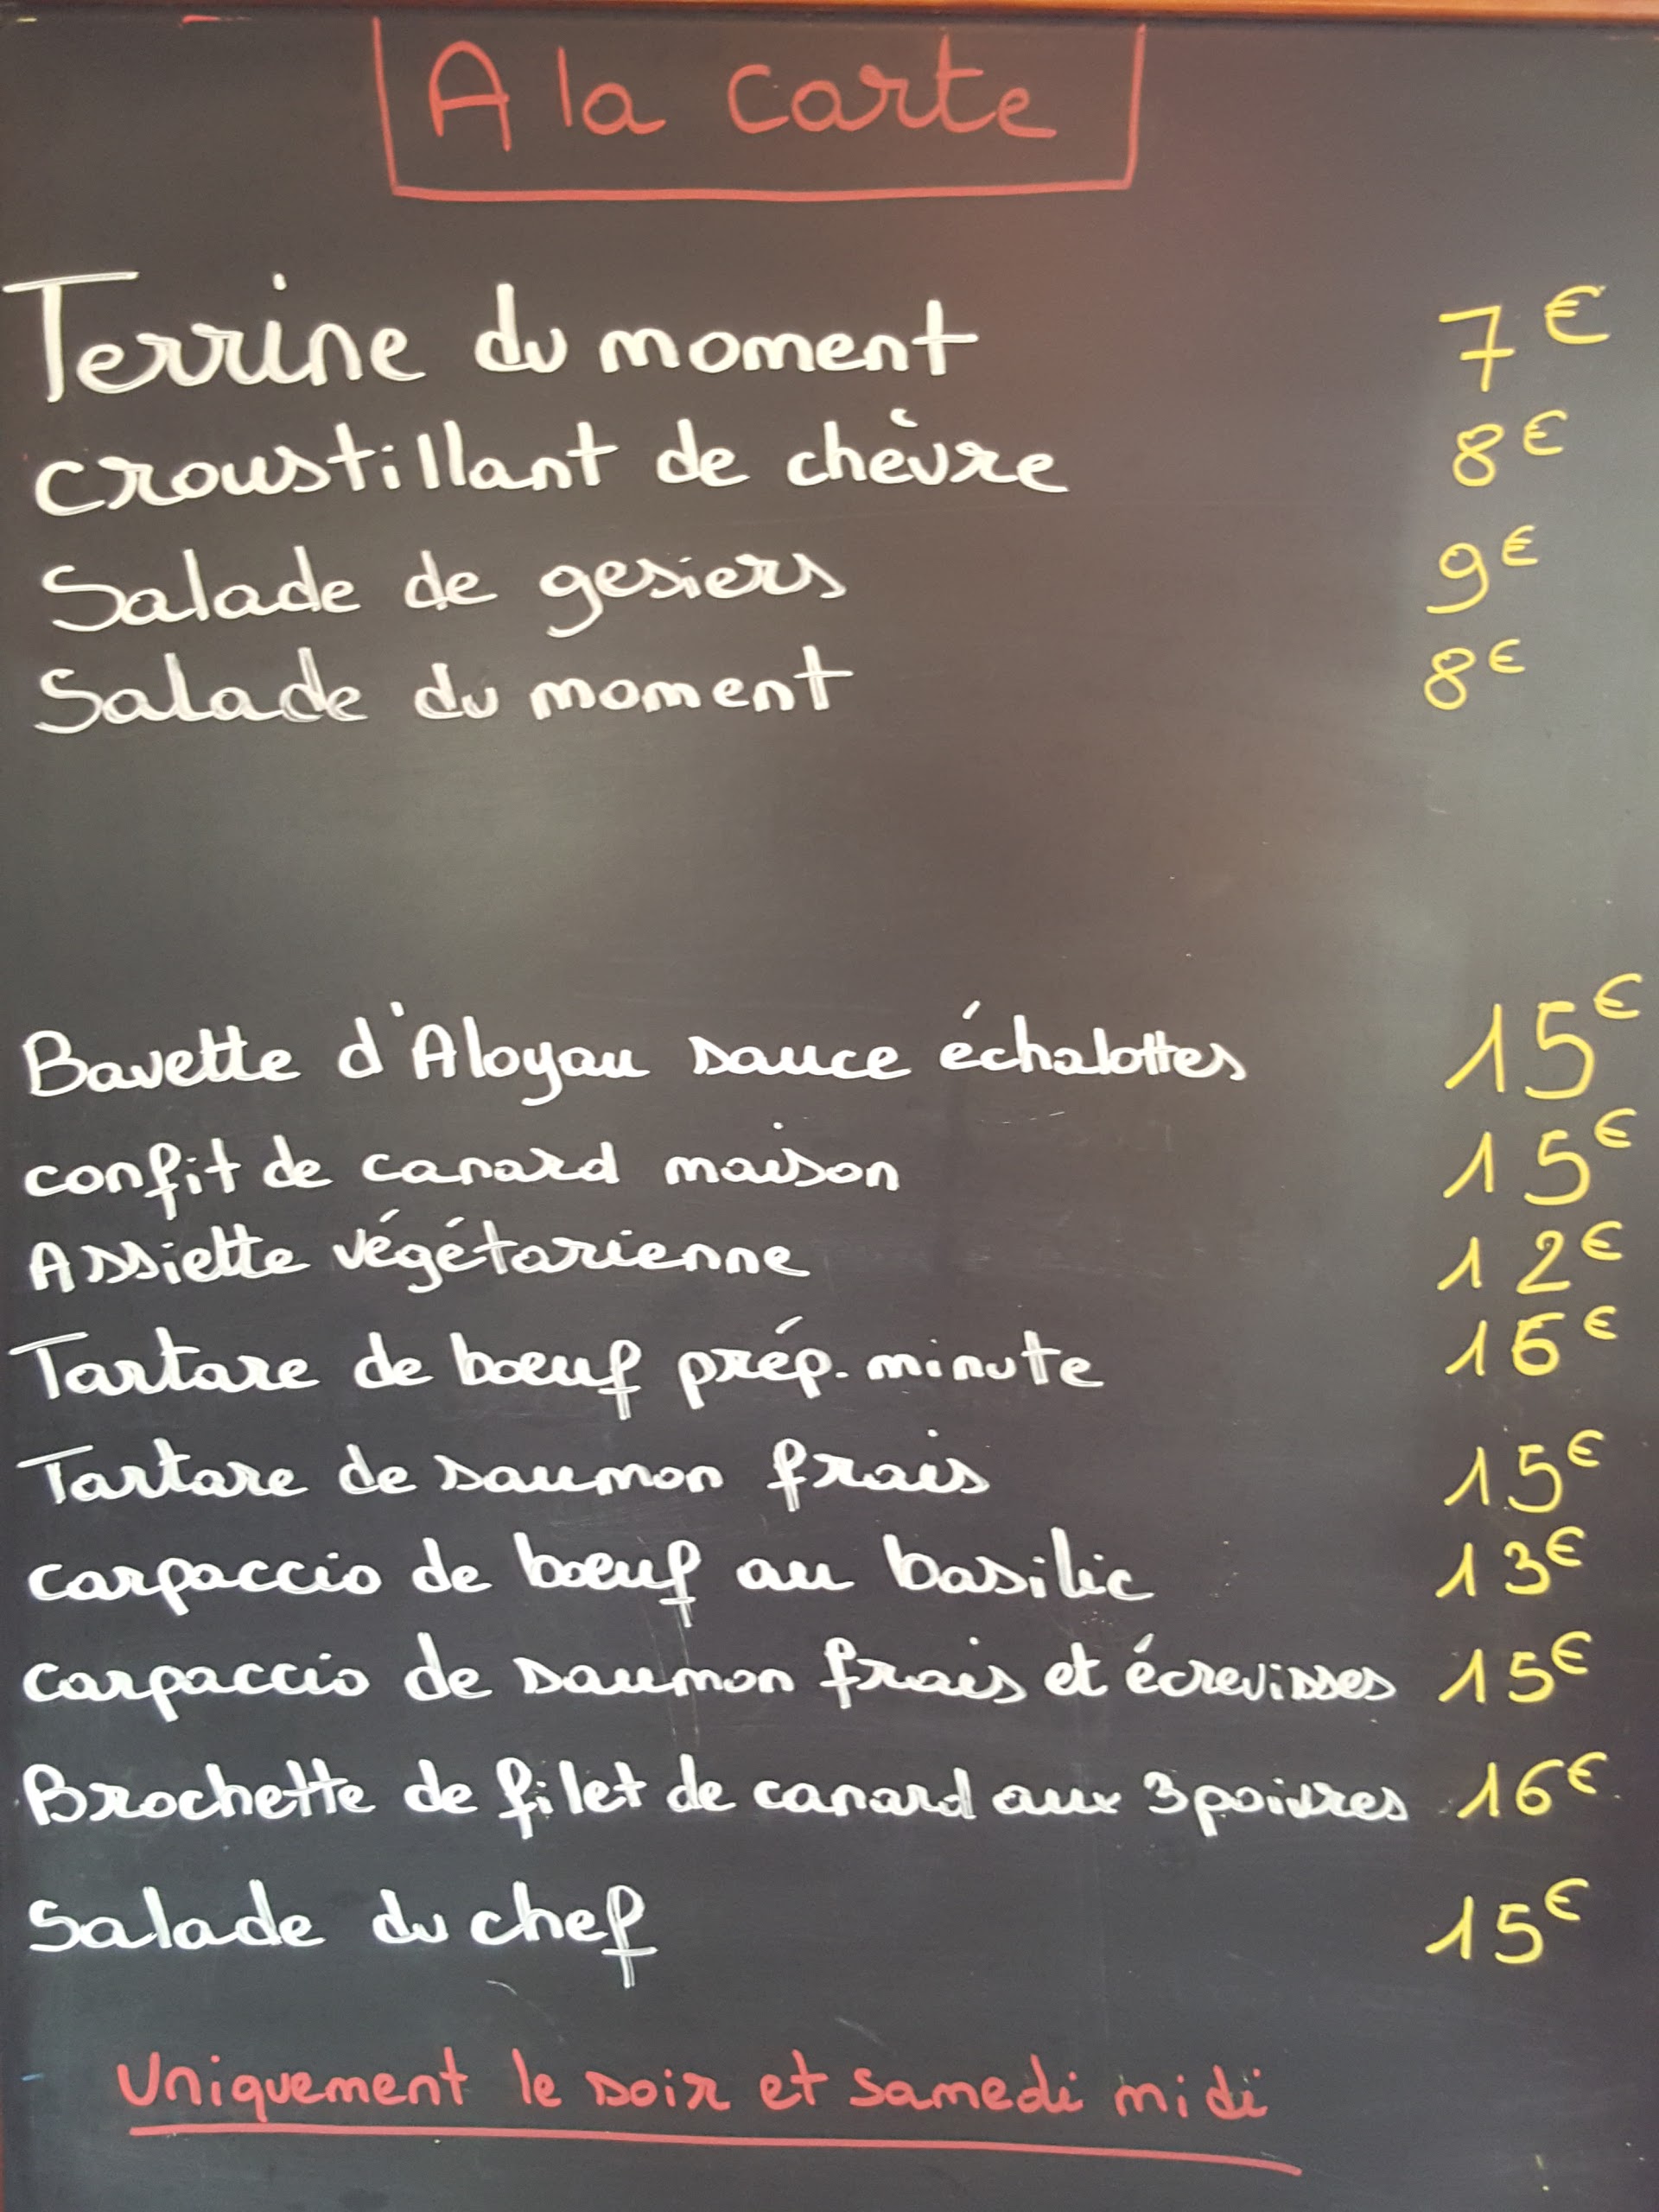 A la carte
Terrine du moment 7€
croustillant de chèvre 8€
Salade de gesiers 9€
Salade du moment 8€
Bavette d'Aloyau sauce échalottes 15€
confit de canard maison 15€
Assiette végétarienne 12€
Tartare de boeuf prép. minute 16€
Tartare de saumon frais 15€
carpaccio de boeuf au basilic 13€
carpaccio de saumon frais et écrevisses 15€
Brochette de filet de canard aux 3 poivres 16€
Salade du chef 15€
Uniquement le soir et samedi midi